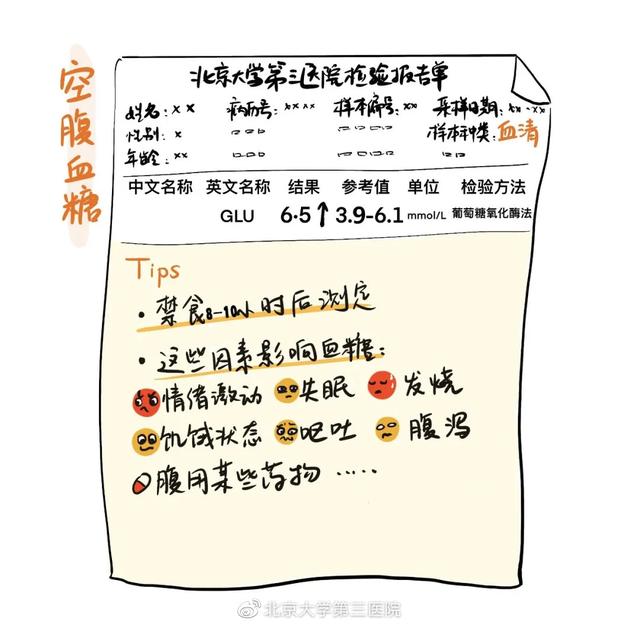 空腹血糖
北京大学第三医院检验报告单
姓名：×× 病历号：×××× 样本编号：×× 采样日期：××-××
性别：× 样本种类：血清
年龄：××
中文名称 英文名称 结果 参考值 单位 检验方法
GLU 6.5↑ 3.9-6.1 mmol/L 葡萄糖氧化酶法
Tips
·禁食8-10h时后测定
·这些因素影响血糖：
情绪激动 失眠 发烧
饥饿状态 呕吐 腹泻
腹用某些药物 ·····
@北京大学第三医院